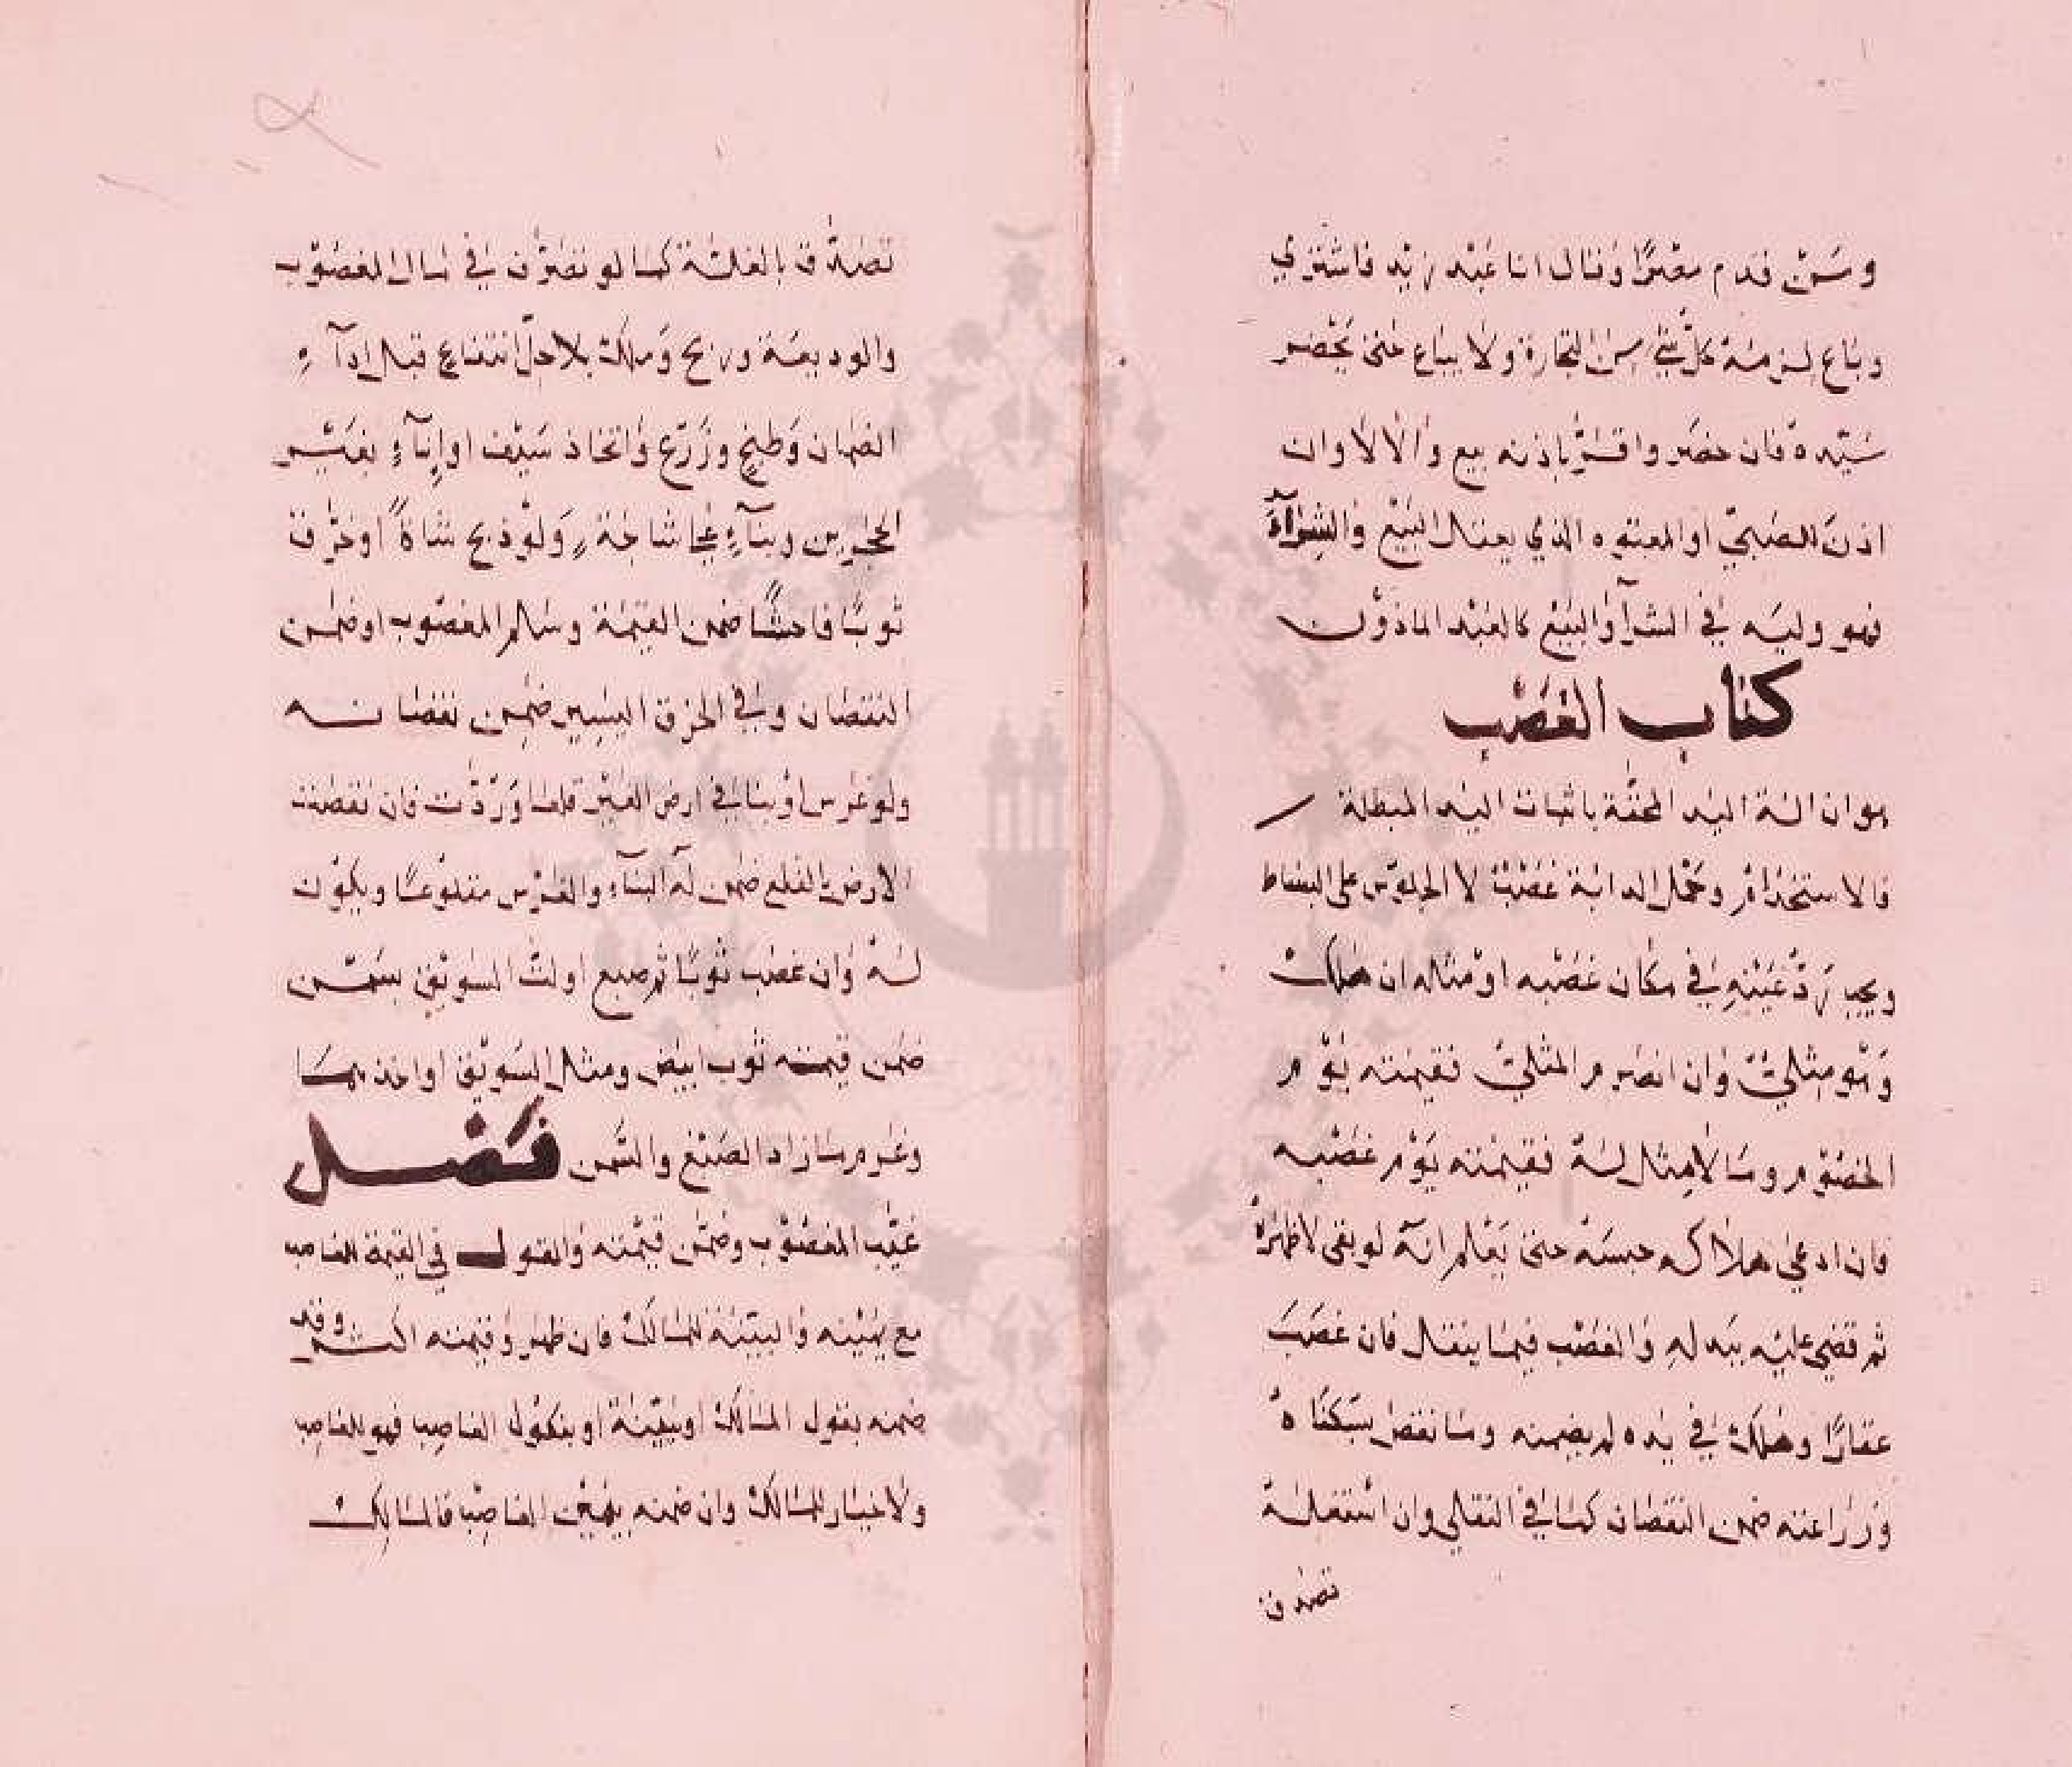 ومن قدم مصرا وقال انا عبد زيد فاشتري
وباع لزمه كل شئ من التجارة ولا يباع حتى يحضر
سيده فان حضر واقر باذنه بيع والا لا وان
اذن للصبي او المعتوه الذي يعقل البيع والشرآء
فهو وليه في الشرآ والبيع كالعبد الماذون
كتاب الغصب
هو ازالة اليد المحقة باثبات اليد المبطلة
فالاستخدام وحمل الدابة غصب لا الجلوس على البساط
ويجب رد عينه في مكان غصبه او مثله ان هلك
وهو مثلي وان انصرم المثلي فقيمته يوم
الخصوم وما لا مثل له فقيمته يوم غصبه
فان ادعى هلاكه حبسه حتى يعلم انه لو بقى لاظهره
ثم قضى عليه ببدله والغصب فيما ينقل فان غصب
عقارا وهلك في يده لم يضمنه وما نقص بسكناه
وزراعته ضمن النقصان كما في النقلي وان استغله
تصدق
تصدق بالغلة كما لو تصرف في مال المغصوب
والوديعة وربح وملك بلا حل انتفاع قبل ادآء
الضمان وطبخ وزرع واتخاذ سيف او انآء بغير
الحجرين وبنآء على ساجة ولو ذبح شاة او خرق
ثوبا فاحشا ضمن القيمة وسلم المغصوب او ضمن
النقصان وفي الخرق اليسير ضمن نقصانه
ولو غرس او بنا في ارض الغير قلعا وردت فان نقصت
الارض بالقلع ضمن له البنآء والغرس مقلوعا ويكون
له وان غصب ثوبا ثم صبغ او لت السويق بسمن
ضمن قيمته ثوب ابيض ومثل السويق او اخذهما
وغرم ما زاد الصبغ والسمن فصل
غيب المغصوب وضمن قيمته والقول في القيمة للغاصب
مع يمينه والبينة للمالك فان ظهر وقيمته اكثر وقد
ضمنه بقول المالك او ببينة او بنكول الغاصب فهو للغاصب
ولا خيار للمالك وان ضمنه بيمين الغاصب فالمالك